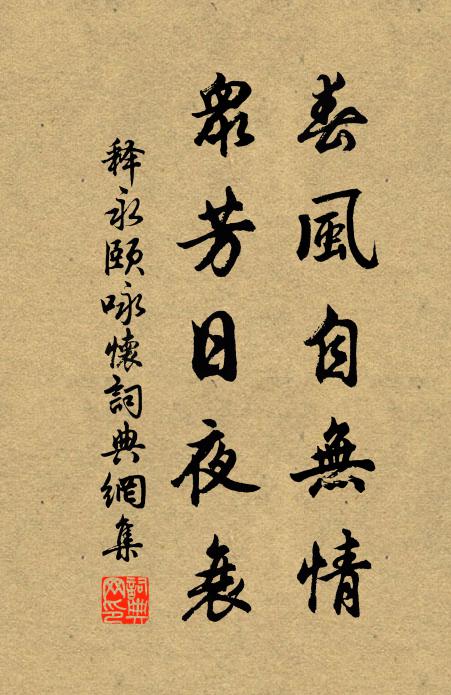 春風自無情
眾芳日夜衰
释永頤咏懷詞典網集
詞典網印